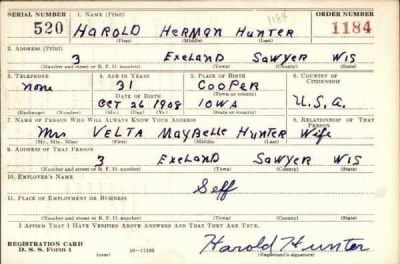 SERIAL NUMBER 1. NAME (Print) 1184 ORDER NUMBER
520 HAROLD HERMAN HUNTER 1184
(First) (Middle) (Last)
2. ADDRESS (Print)
3 EXELAND SAWYER WIS
(Number and street or R. F. D. number) (Town) (County) (State)
3. TELEPHONE 4. AGE IN YEARS 5. PLACE OF BIRTH 6. COUNTRY OF CITIZENSHIP
none 31 COOPER
DATE OF BIRTH (Town or county)
OCT 26 1908 IOWA U.S.A.
(Exchange) (Number) (Mo.) (Day) (Yr.) (State or country)
7. NAME OF PERSON WHO WILL ALWAYS KNOW YOUR ADDRESS 8. RELATIONSHIP OF THAT PERSON
Mrs VELTA MAYBELLE HUNTER Wife
(Mr., Mrs., Miss) (First) (Middle) (Last)
9. ADDRESS OF THAT PERSON
3 EXELAND SAWYER WIS
(Number and street or R. F. D. number) (Town) (County) (State)
10. EMPLOYER'S NAME
Self
11. PLACE OF EMPLOYMENT OR BUSINESS
(Number and street or R. F. D. number) (Town) (County) (State)
I AFFIRM THAT I HAVE VERIFIED ABOVE ANSWERS AND THAT THEY ARE TRUE.
REGISTRATION CARD
D. S. S. Form 1 16—17105 Harold Hunter
(Registrant's signature)